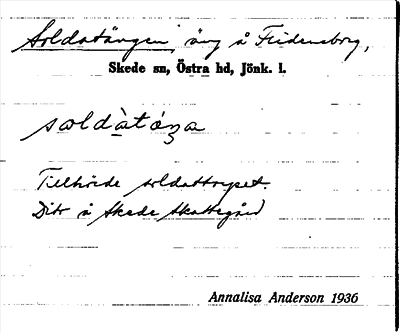 Soldatängen, äng å Fridensborg,
Skede sn, Östra hd, Jönk. l.
Tillhörde soldattorpet.
Dito å Skede Skattegård
Annalisa Anderson 1936